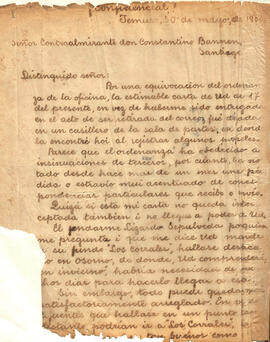 ¡Confidencial!
Temuco, 30 de mayo, de 19
Señor Contraalmirante don Constantino Bannen,
Santiago
Distinguido señor:
Por una equivocación del ordenan-
za de la oficina, la estimable carta de Ud. de 17
del presente, en vez de haberme sido entregada
en el acto de ser retirada del correo, fué dejada
en un casillero de la sala de partes, en donde
la encontré hoi al rejistrar algunos papeles.
Parece que el ordenanza ha obedecido a
insinuaciones de terceros, por cuanto, ha no-
tado desde hace mas de un mes una pér-
dida o estravío mui acentuado de corres-
pondencias particulares que recibo o envío.
Quizá si esta mi carta no queda inter-
ceptada tambien i no llegue a poder de Ud.
El jendarme Ligardo Sepulveda
me pregunta i que me dice Ud. mande
a su fundo "Los Corrales", hállase destaca-
do en Osorno, de donde, Ud. comprende
en invierno, habria necesidad de
chos dias para hacerlo llegar a esa.
Sin embargo, todo puede quedar
satisfactoriamente arreglado. En
fuentes que hállase en un punto
podrian ir a "Los Corrales",
buenos como